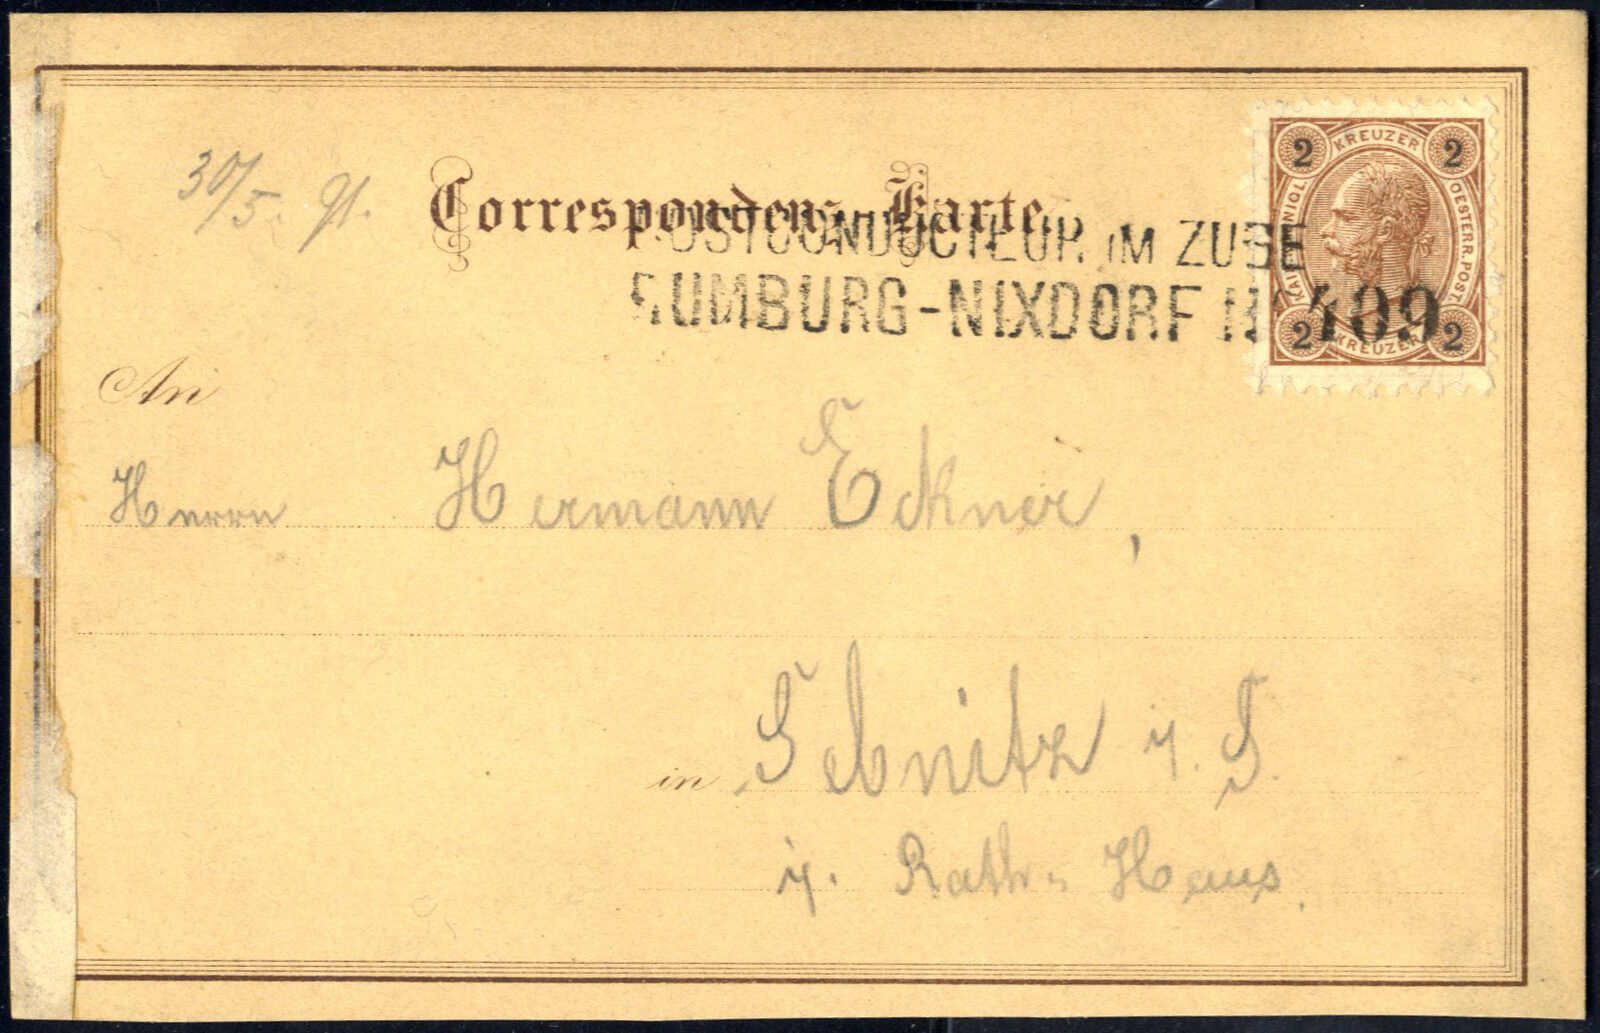 30/5. 91.
Correspondenz-Karte
POSTCONDUCTEUR IM ZUGE
RUMBURG-NIXDORF No 409
2 KREUZER 2
KAIS. KÖNIGL. OESTERR. POST.
2 KREUZER 2
An
Herrn Hermann Eckner,
in Sebnitz i. S.
i. Rath-Haus.